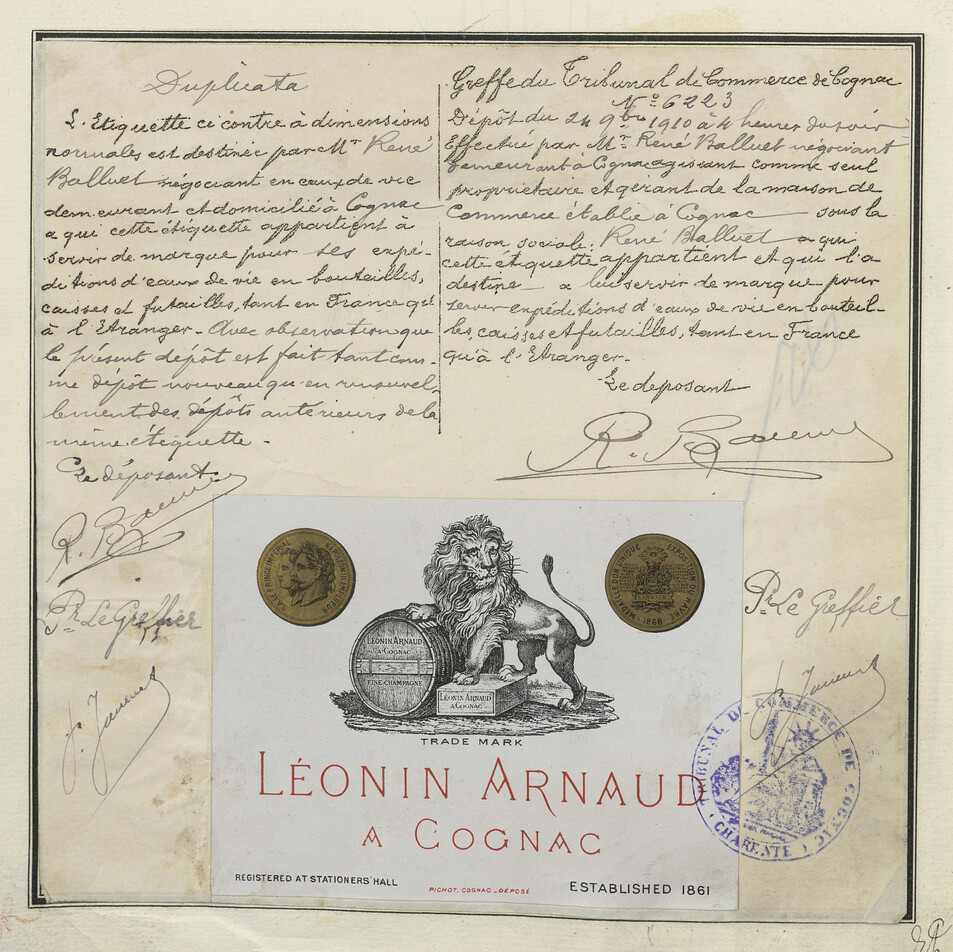 Duplicata
L'Etiquette ci contre à dimensions
normales est destinée par Mr René
Balluet négociant en eaux de vie
demeurant et domicilié à Cognac
a qui cette étiquette appartient à
servir de marque pour ses expé-
ditions d'eaux de vie en bouteilles,
caisses et futailles, tant en France qu'
à l'Etranger - Avec observation que
le présent dépôt est fait tant com-
me dépôt nouveau qu'en renouvel-
lement des dépôts antérieurs de la
même étiquette -
Le déposant
Pr Le Greffier
Greffe du Tribunal de Commerce de Cognac
No 6223
Dépôt du 24 9bre 1910 à 4 heures du soir
Effectué par Mr René Balluet négociant
demeurant à Cognac agissant comme seul
propriétaire et gérant de la maison de
Commerce établie à Cognac sous la
raison sociale: René Balluet a qui
cette étiquette appartient et qui l'a
destine a lui servir de marque pour
ses expéditions d'eaux de vie en bouteil-
les, caisses et futailles, tant en France
qu'à l'Etranger -
Le deposant
Pr Le Greffier
S.A. LE PRINCE IMPERIAL NAPOLEON III EMPEREUR
MEDAILLE D'OR UNIQUE EXPOSITION DU HAVRE
1868
LÉONIN ARNAUD
A COGNAC
FINE CHAMPAGNE
LÉONIN ARNAUD
A COGNAC
TRADE MARK
LÉONIN ARNAUD
A COGNAC
REGISTERED AT STATIONERS' HALL
PICHOT. COGNAC _ DÉPOSÉ
ESTABLISHED 1861
TRIBUNAL DE COMMERCE DE COGNAC
(CHARENTE)